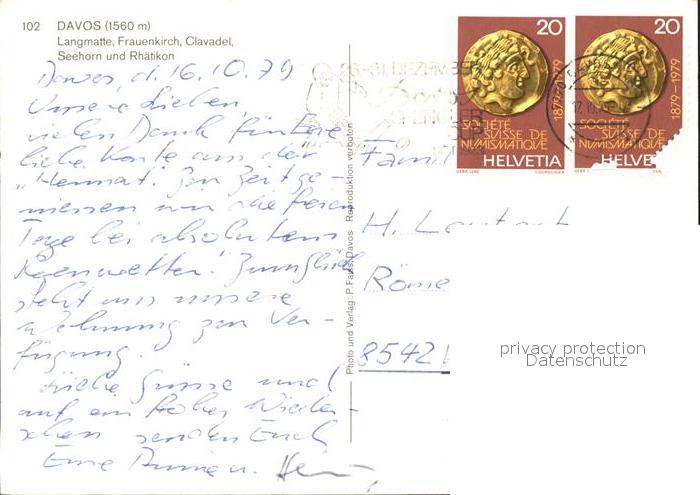 102 DAVOS (1560 m)
Langmatte, Frauenkirch, Clavadel,
Seehorn und Rhätikon
Davos, d. 16.10.79
Unsere Lieben,
vielen Dank für Eure
liebe Karte aus der
"Heimat". Zur Zeit ge-
niessen wir die freien
Tage bei absolutem
Regenwetter! Zum Glück
steht uns unsere
Wohnung zur Ver-
fügung.
Liebe Grüsse und
auf ein frohes Wieder-
sehen senden Euch
Eure Annie u.
Photo und Verlag: P. Faiss, Davos Reproduktion verboten
26.-31. DEZEMBER
Davos
SPENGLER
CUP
20
1879–1979
SOCIÉTÉ
SUISSE DE
NUMISMATIQUE
HELVETIA
COURVOISIER
20
1879–1979
SOCIÉTÉ
SUISSE DE
NUMISMATIQUE
HELVE
Famil
H.
Röme
8542
privacy protection
Datenschutz